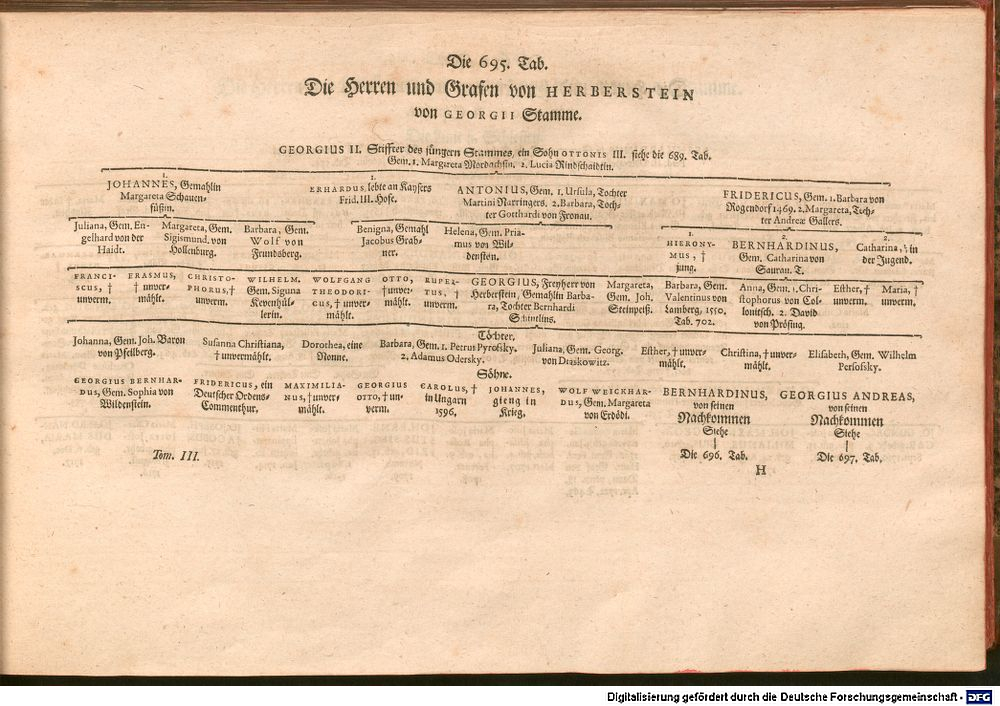 Die 695. Tab.
Die Herren und Grafen von HERBERSTEIN
von GEORGII Stamme.
GEORGIUS II. Stiffter des jüngern Stammes, ein Sohn OTTONIS III. siehe die 689. Tab.
Gem. 1. Margareta Mordachsin. 2. Lucia Rindschaidtin.
1.
JOHANNES, Gemahlin
Margareta Schauen-
füßin.
1.
ERHARDUS, lebte an Kaysers
Frid. III. Hofe.
ANTONIUS, Gem. 1. Ursula, Tochter
Martini Narringers. 2. Barbara, Toch-
ter Gotthardi von Fronau.
FRIDERICUS, Gem. 1. Barbara von
Rogendorf 1469. 2. Margareta, Toch-
ter Andreæ Gallers.
Juliana, Gem. En-
gelhard von der
Haidt.
Margareta, Gem.
Sigismund. von
Hollenburg.
Barbara, Gem.
Wolf von
Frundsberg.
Benigna, Gemahl
Jacobus Grab-
ner.
Helena, Gem. Pria-
mus von Wil-
denstein.
1.
HIERONY-
MUS, †
jung.
2.
BERNHARDINUS,
Gem. Catharina von
Saurau. T.
2.
Catharina, † in
der Jugend.
FRANCI-
SCUS, †
unverm.
ERASMUS,
† unver-
mählt.
CHRISTO-
PHORUS, †
unverm.
WILHELM.
Gem. Siguna
Kevenhül-
lerin.
WOLFGANG
THEODORI-
CUS, † unver-
mählt.
OTTO,
† unver-
mählt.
RUPER-
TUS, †
unverm.
GEORGIUS, Freyherr von
Herberstein, Gemahlin Barba-
ra, Tochter Bernhardi
Margareta,
Gem. Joh.
Steinpeiß.
Barbara, Gem.
Valentinus von
Lamberg, 1550.
Tab. 702.
Anna, Gem. 1. Chri-
stophorus von Col-
lonitsch. 2. David
von Prösing.
Esther, †
unverm.
Maria, †
unverm.
Töchter,
Johanna, Gem. Joh. Baron
von Pfeilberg.
Susanna Christiana,
† unvermählt.
Dorothea, eine
Nonne.
Barbara, Gem. 1. Petrus Pyrofsky.
2, Adamus Odersky.
Juliana, Gem. Georg.
von Draskowitz.
Esther, † unver-
mählt.
Christina, † unver-
mählt.
Elisabeth, Gem. Wilhelm
Persofsky.
Söhne.
GEORGIUS BERNHAR-
DUS, Gem. Sophia von
Wildenstein.
FRIDERICUS, ein
Deutscher Ordens-
Commenthur,
MAXIMILIA-
NUS, † unver-
mählt.
GEORGIUS
OTTO, † un-
verm.
CAROLUS, †
in Ungarn
1596.
JOHANNES,
gieng in
Krieg.
WOLF WEICKHAR-
DUS, Gem. Margareta
von Erdödi.
BERNHARDINUS,
von seinen
Nachkommen
Siehe
Die 696. Tab.
GEORGIUS ANDREAS,
von seinen
Nachkommen
Siehe
Die 697. Tab.
Tom. III.
H
Digitalisierung gefördert durch die Deutsche Forschungsgemeinschaft - DFG